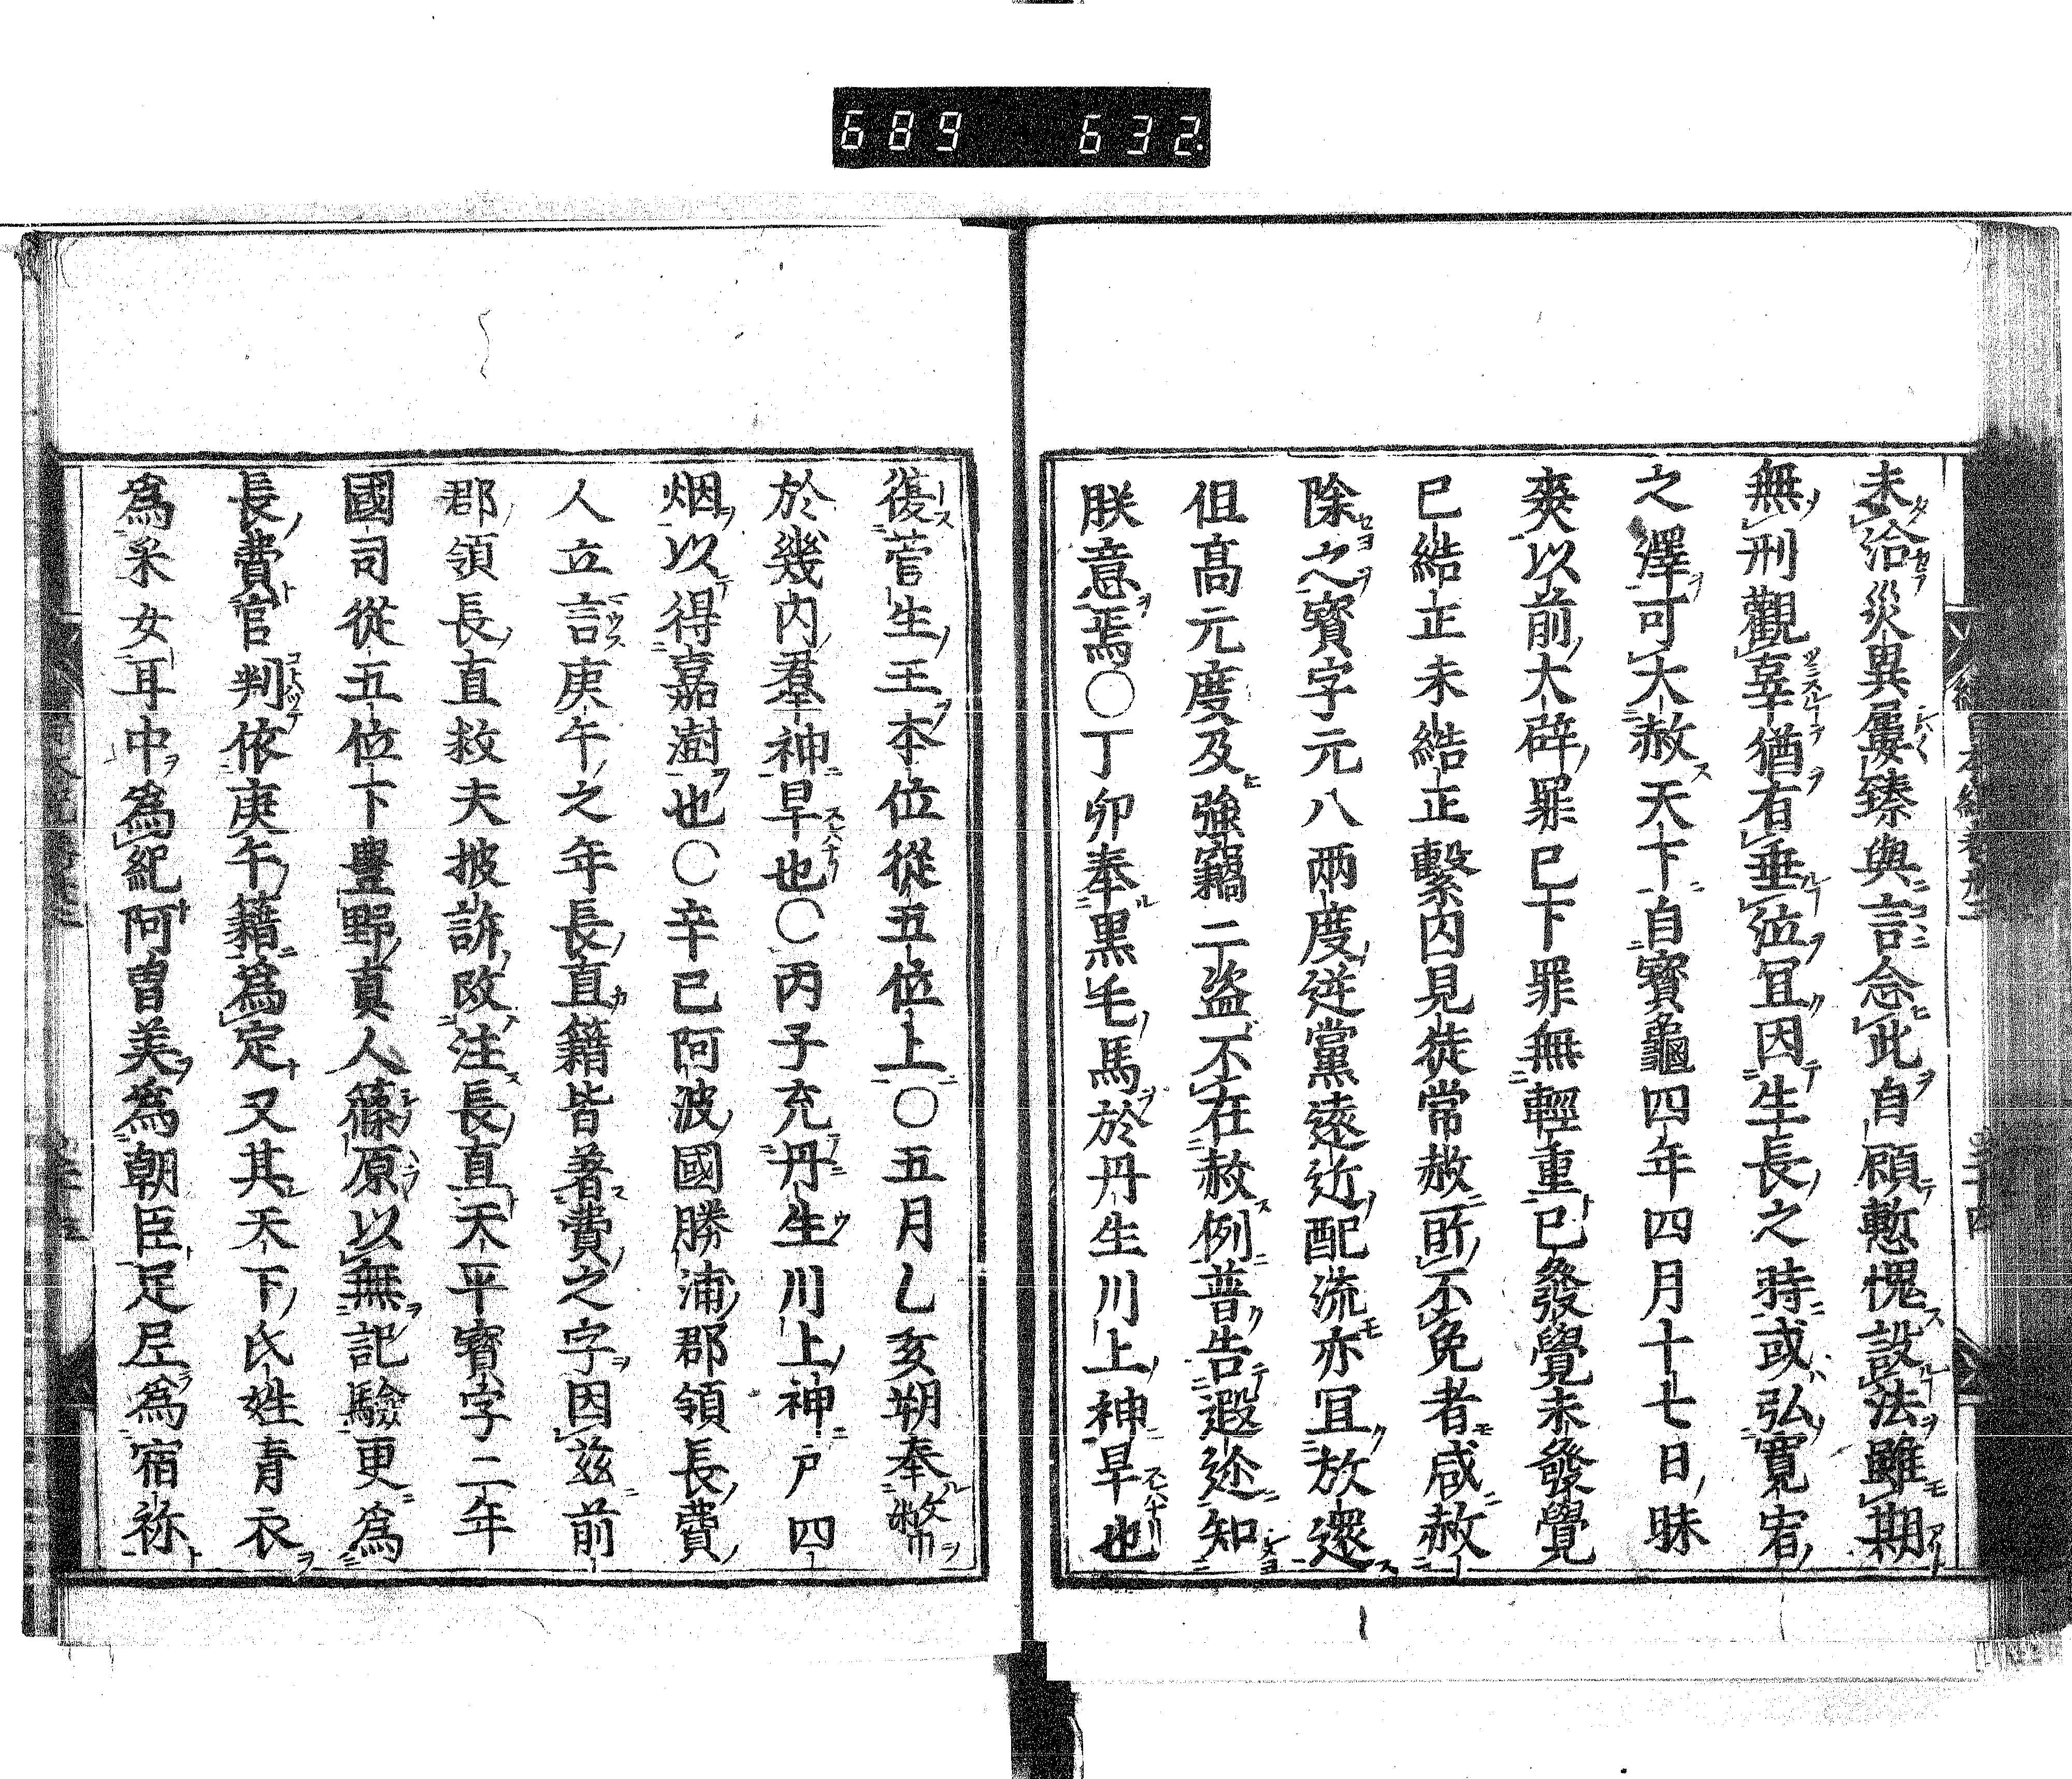 689 632
未洽災異屢臻與言念此自顧慙愧設法雖期
無刑觀辜猶有垂泣冝因生長之時或弘寬宥
之澤可大赦天下自寳龜四年四月十七日昧
爽以前大辟罪巳下罪無輕重已發覺未發覺
巳結正未結正繫囚見徒常赦所不免者咸赦
除之寳字元八兩度逆黨遠近配流亦冝放還
但高元度及強竊二盗不在赦例普告遐迩知
朕意焉〇丁卯奉黒毛馬於丹生川上神旱也
復菅生王本位從五位上〇五月乙亥朔奉幣
於幾内羣神旱也〇丙子充丹生川上神戸四
烟以得嘉澍也〇辛已阿波國勝浦郡領長費
人立言庚午之年長直籍皆著費之字因兹前
郡領長直救夫披訴改注長直天平寳字二年
國司從五位下豊野真人篠原以無記驗更爲
長費官判依庚午籍爲定又其天下氏姓青衣
爲采女耳中爲紀阿曽美爲朝臣足尼爲宿祢